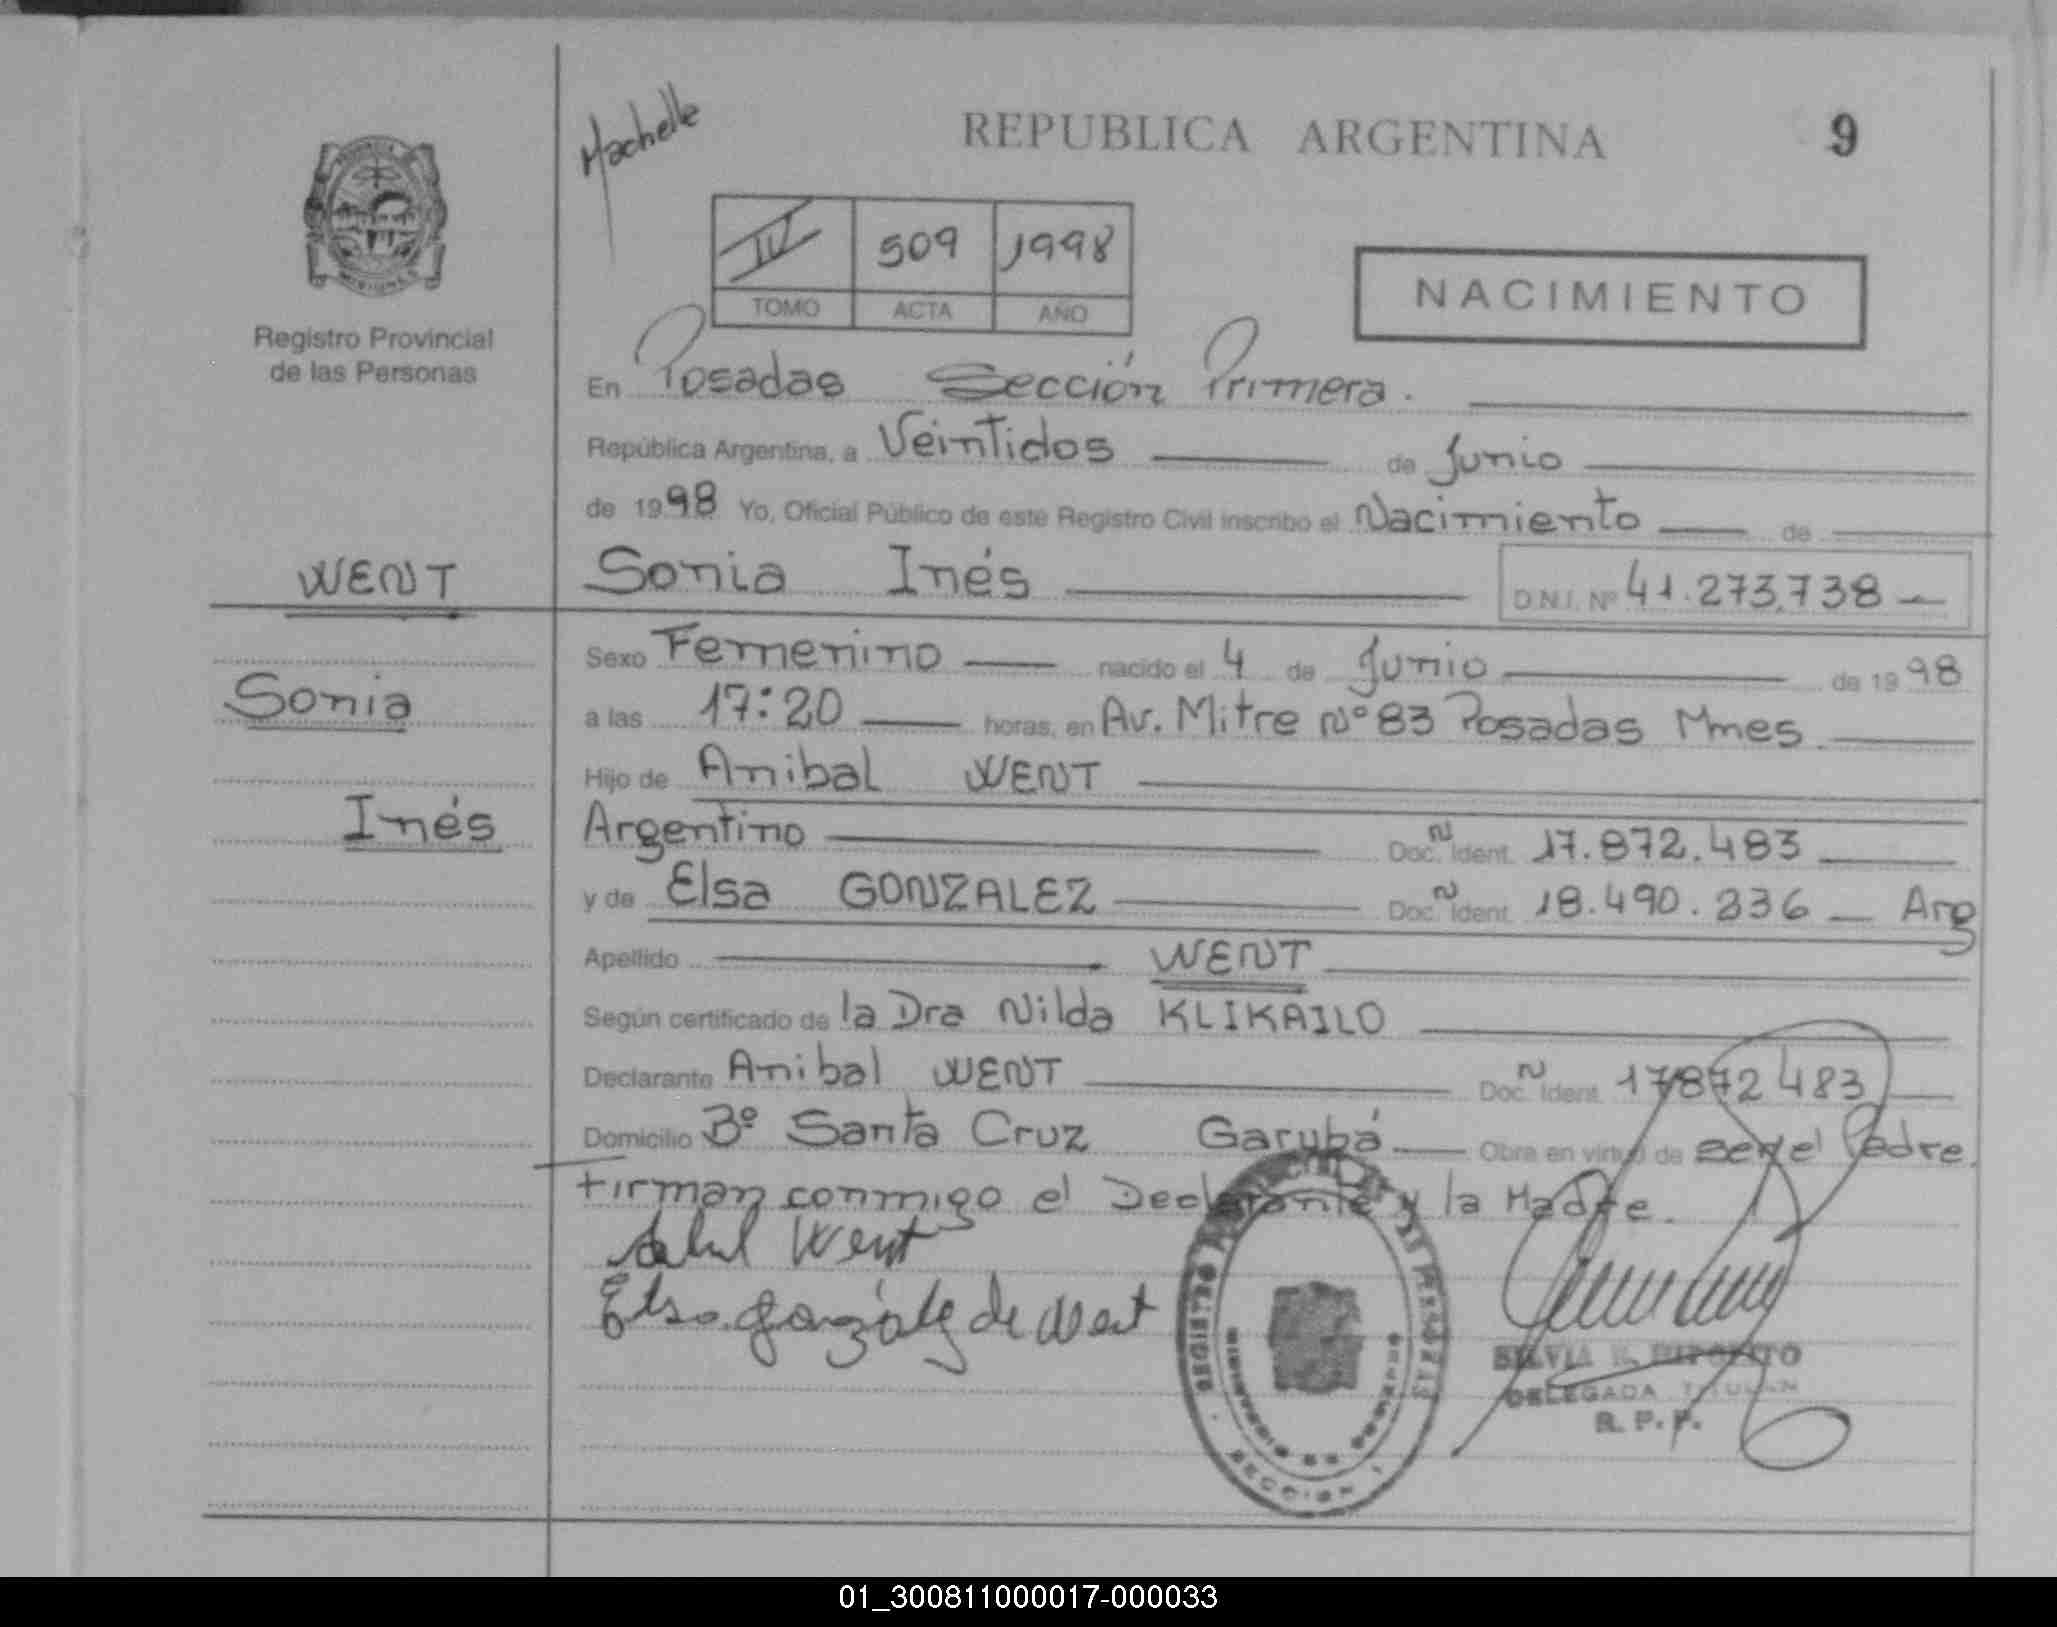 Machelle
REPUBLICA ARGENTINA 9
IV 509 1998
TOMO ACTA AÑO
NACIMIENTO
Registro Provincial
de las Personas
En Posadas Sección Primera.
República Argentina, a Veintidos de Junio
de 1998 Yo, Oficial Público de este Registro Civil inscribo el Nacimiento de
WENT Sonia Inés D.N.I. Nº 41.273.738
Sexo Femenino nacido el 4 de Junio de 1998
Sonia
a las 17:20 horas, en Av. Mitre Nº 83 Posadas Mnes.
Hijo de Anibal WENT
Inés
Argentino Doc. Ident. 17.872.483
y de Elsa GONZALEZ Doc. Ident. 18.490.336 Arg
Apellido WENT
Según certificado de la Dra Nilda KLIKAILO
Declarante Anibal WENT Doc. Ident. 17872483
Domicilio Bº Santa Cruz Garupá Obra en virtud de ser el Padre.
Firman conmigo el Declarante y la Madre.
Went
Elsa Gonzalez de Went
REGISTRO PROVINCIAL DE LAS PERSONAS
SECCION 1
SILVIA
DELEGADA TITULAR
R. P. P.
01_300811000017-000033